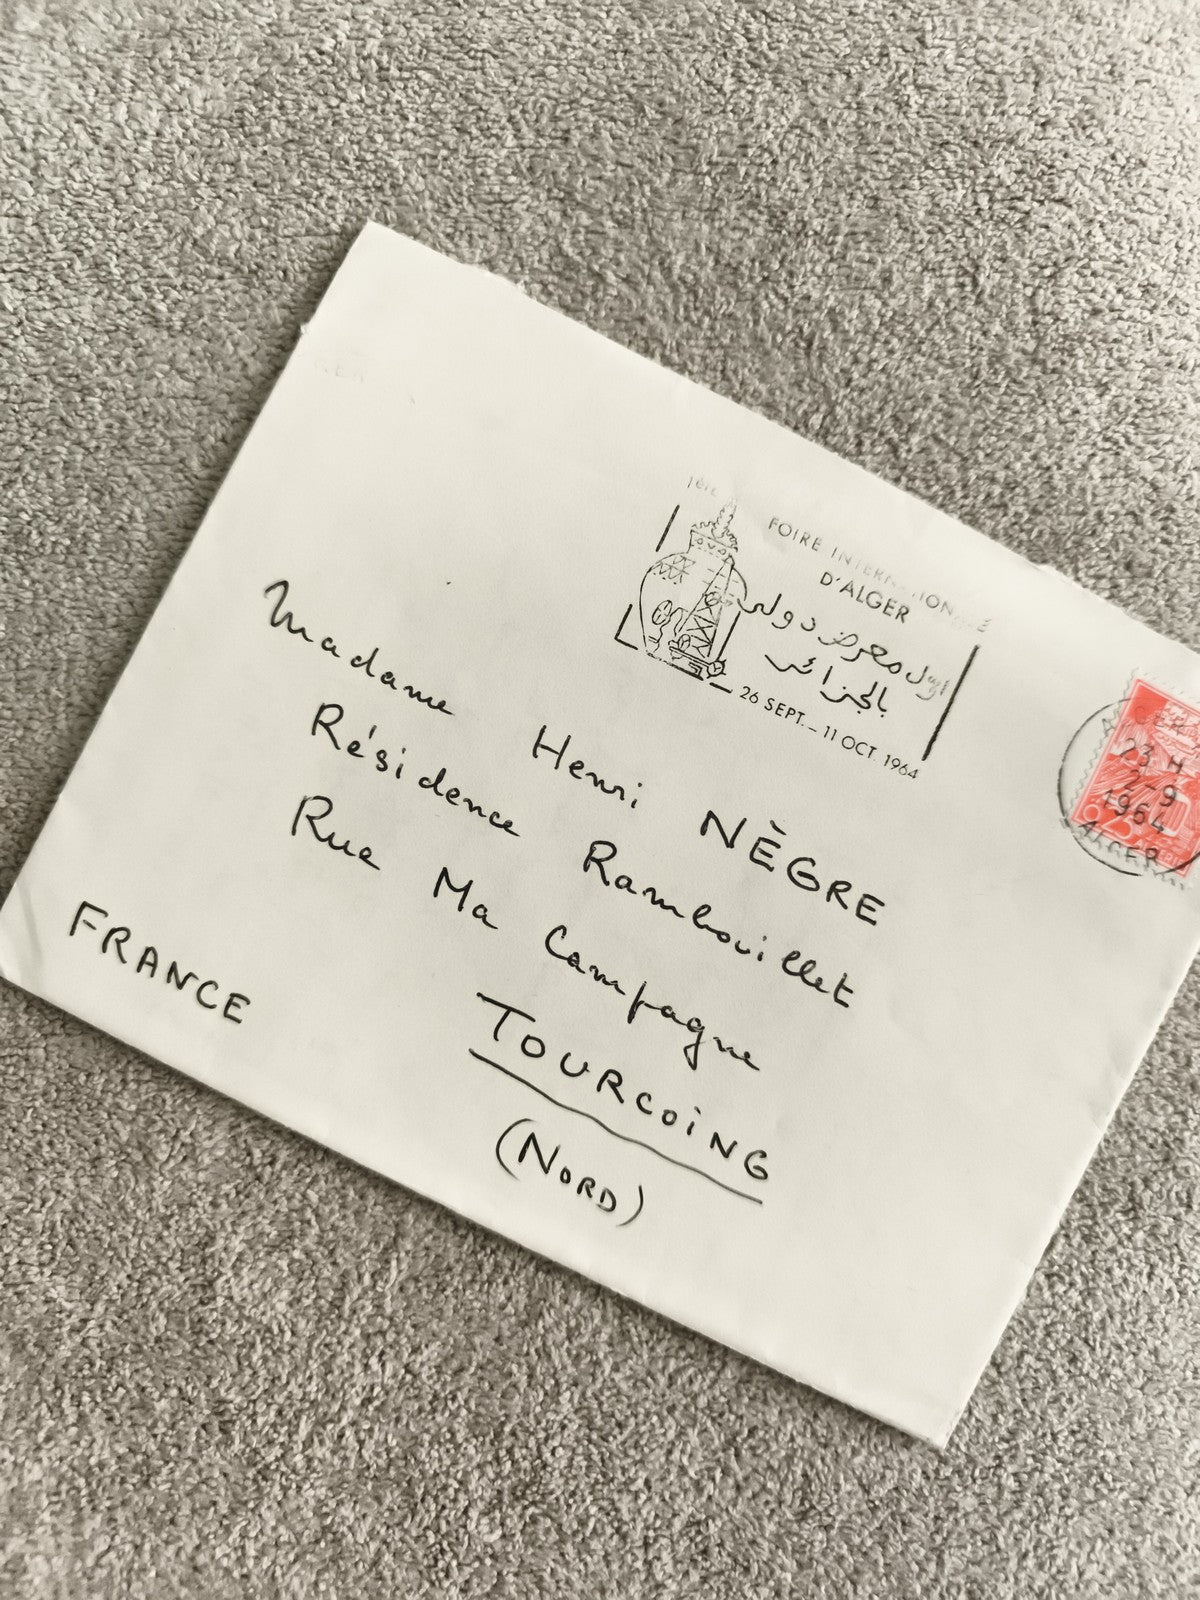 1ère
FOIRE INTERNATIONALE
D'ALGER
اول معرض دولي
بالجزائر
26 SEPT. _ 11 OCT. 1964
ALGER
23 H
2-9
1964
ALGER
0,25
Madame Henri NÈGRE
Résidence Rambouillet
Rue Ma Campagne
TOURCOING
(NORD)
FRANCE